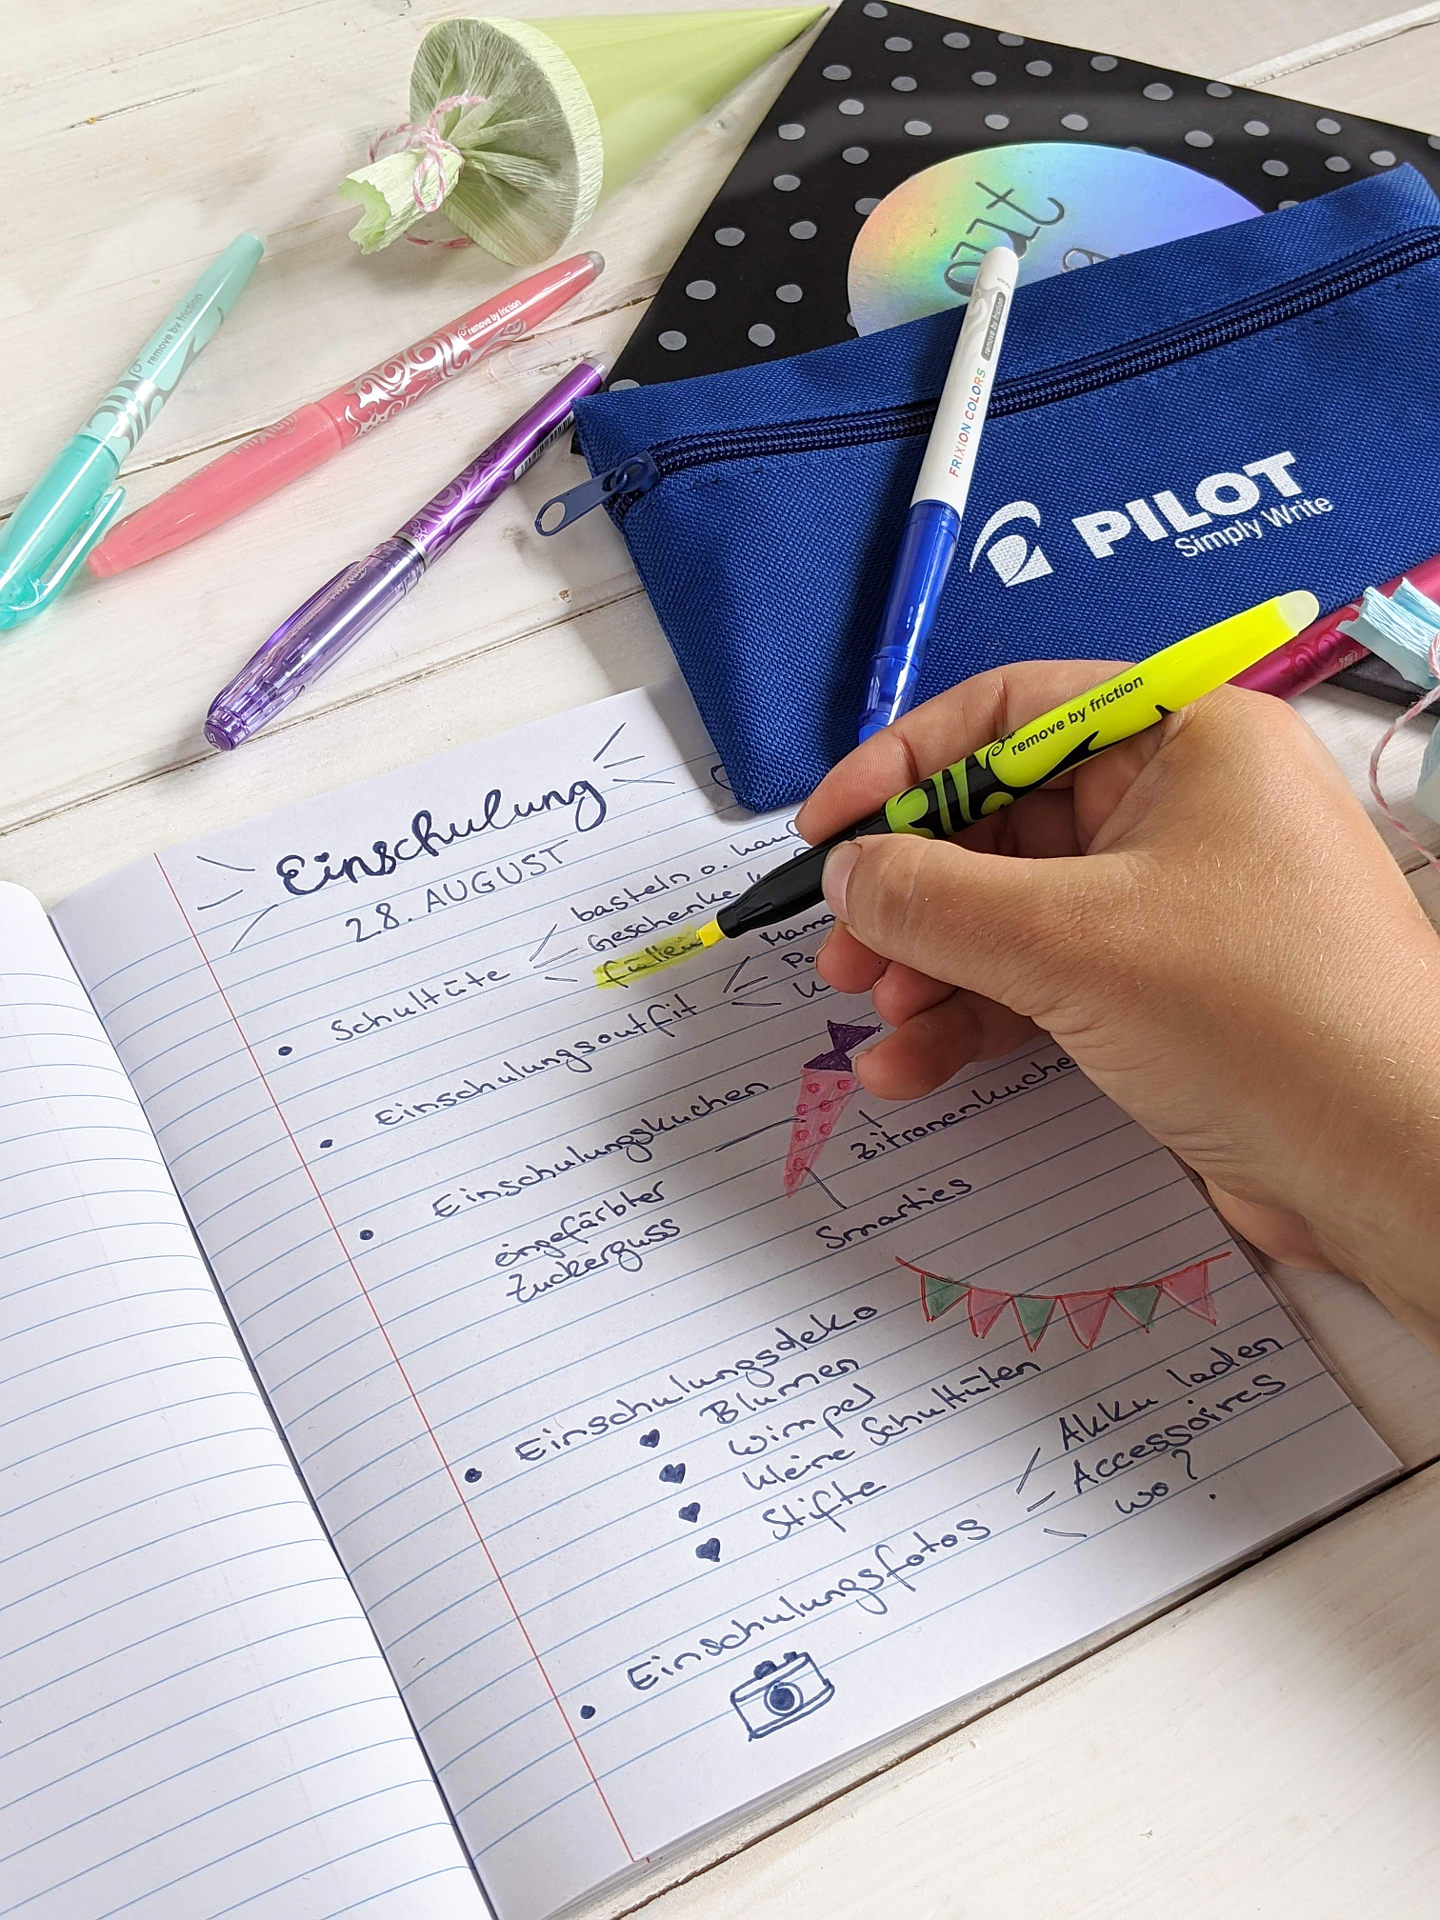 out
remove by friction
remove by friction
remove by friction
FRIXION COLORS
PILOT
Simply Write
remove by friction
Einschulung
28. AUGUST
basteln o.
Schultüte
Geschenke
füllen
Einschulungsoutfit
Mama
Einschulungskuchen
Zitronenkuchen
eingefärbter
Zuckerguss
Smarties
Einschulungsdeko
Blumen
Wimpel
kleine Schultüten
Stifte
Einschulungsfotos
Akku laden
Accessoires
wo?